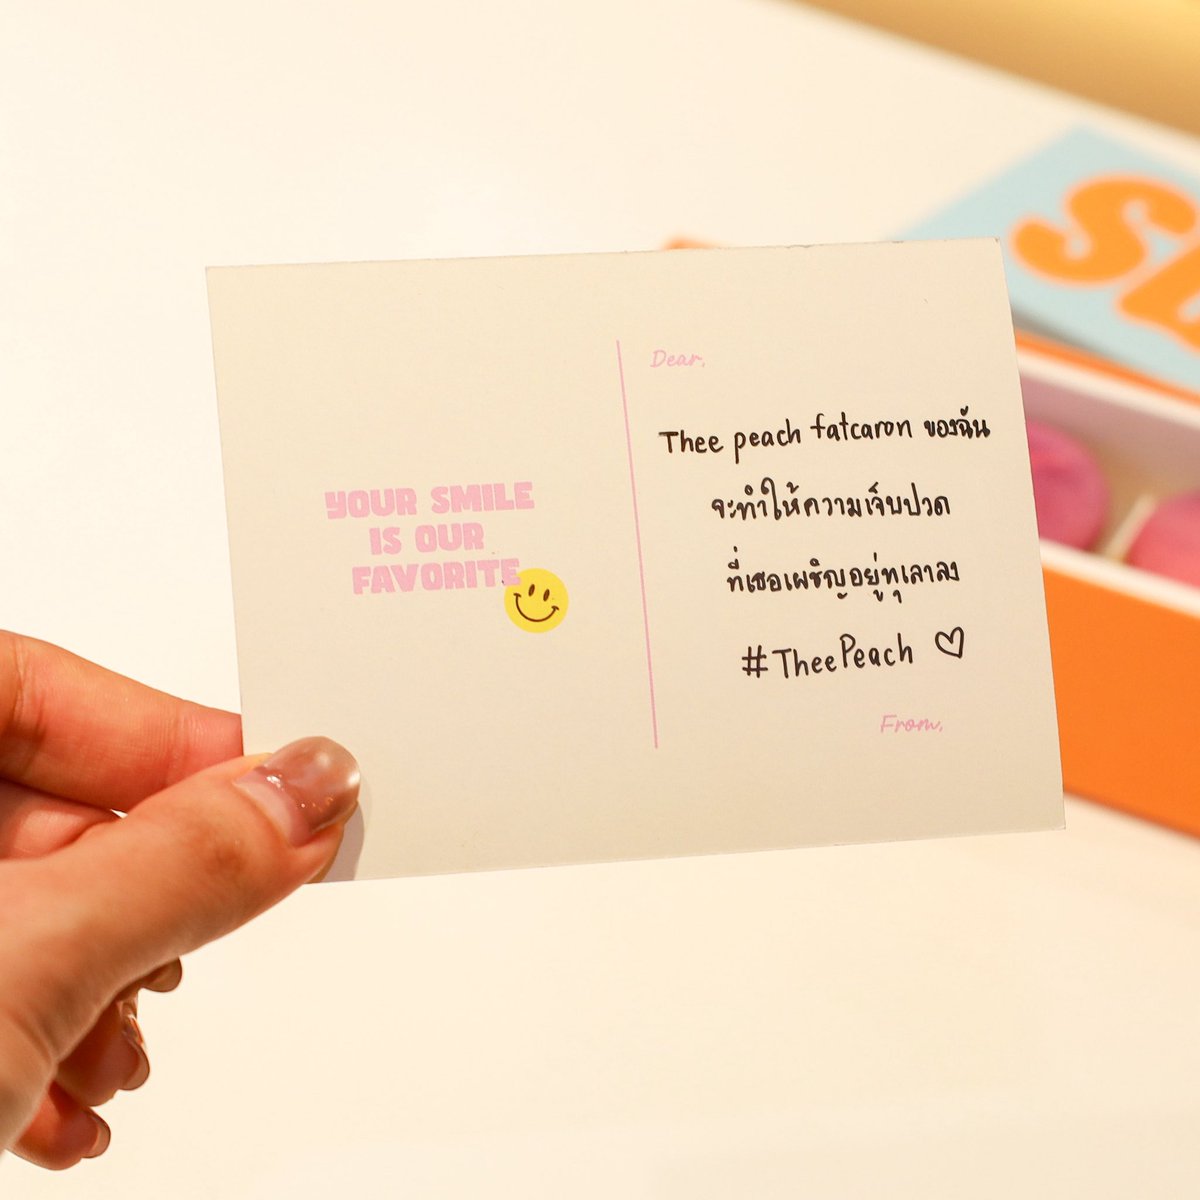 YOUR SMILE
IS OUR
FAVORITE
Dear,
Thee peach fatcaron ของฉัน
จะทำให้ความเจ็บปวด
ที่เธอเผชิญอยู่ทุเลาลง
#TheePeach ♡
From,